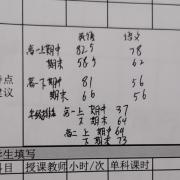 英语 语文
高一上期中 82.5 78
期末 58.5 62
高一下期中 81 56
期末 66 56
年级排名 高一上期中 37
下期末 64
高二上期中 64
下期末 73
点
议
生填写
科目 授课教师 小时/次 单科课时